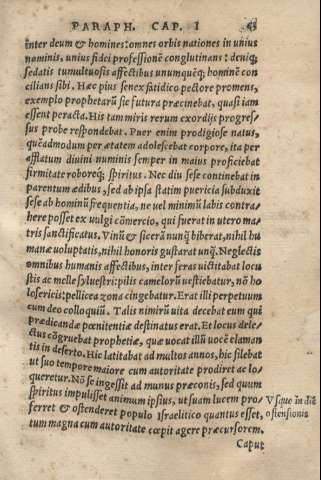 PARAPH. CAP. I
inter deum & homines: omnes orbis nationes in unius
nominis, unius fidei professionē conglutinans: deniq;
sedatis tumultuosis affectibus unumquēq; hominē con
cilians sibi. Hæc pius senex fatidico pectore promens,
exemplo prophetarū sic futura præcinebat, quasi iam
essent peracta. His tam miris rerum exordijs progres/
sus probe respondebat. Puer enim prodigiose natus,
quēadmodum per ætatem adolescebat corpore, ita per
afflatum divini numinis semper in maius proficiebat
firmitate roboreq; spiritus. Nec diu sese continebat in
parentum ædibus, sed ab ipsa statim puericia subduxit
sese ab hominū frequentia, ne vel minimū labis contra/
here posset ex vulgi cōmercio, qui fuerat in utero ma/
tris sanctificatus. Vinū & sicerū nunq̄ biberat, nihil hu
manæ voluptatis, nihil honoris gustarat unq̄. Neglectis
omnibus humanis affectibus, inter feras victitabat locu
stis ac melle sylvestri: pilis camelorū vestiebatur, nō ho
losericis: pellicea zona cingebatur. Erat illi perpetuum
cum deo colloquiū. Talis nimirū vita decebat eum qui
prædicandæ pœnitentiæ destinatus erat. Et locus dele/
ctus cōgruebat prophetiæ, quæ vocat illū vocē claman
tis in deserto. Hic latitabat ad multos annos, hic silebat
ut suo tempore maiore cum autoritate prodiret ac lo/
queretur. Nō se ingessit ad munus præconis, sed quum
spiritus impulisset animum ipsius, ut suam lucem pro/
ferret & ostenderet populo Israelitico quantus esset,
tum magna cum autoritate cœpit agere præcursorem.
Vsque in diē
ostensionis
Caput